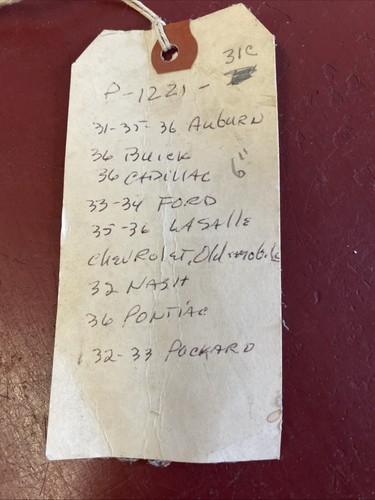 31C
P-1221-
31-35-36 AUBURN
36 BUICK
36 CADILLAC
6"
33-34 FORD
35-36 LASALLE
CHEVROLET, Oldsmobile
32 NASH
36 PONTIAC
32-33 PACKARD